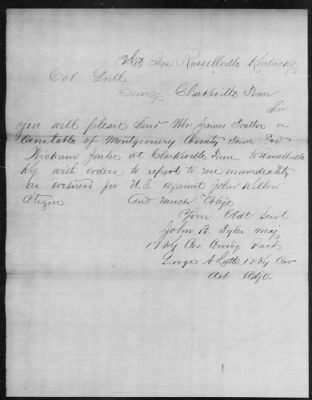 Hd Qrs Russellville Kentucky
Col
Comdg Clarksville Tenn
Sir
you will please Send Mr James a
Constable of Montgomery County Tenn
Wickum Jailer at Clarksville Tenn to Russellville
Ky with orders to report to me immediately
as witness for U S against John
Citizen And much Oblige
Your Obdt Servt
John B. Tyler Maj
17 Ky Cav Comdg Post
George A 17 Ky Cav
Act Adjt.